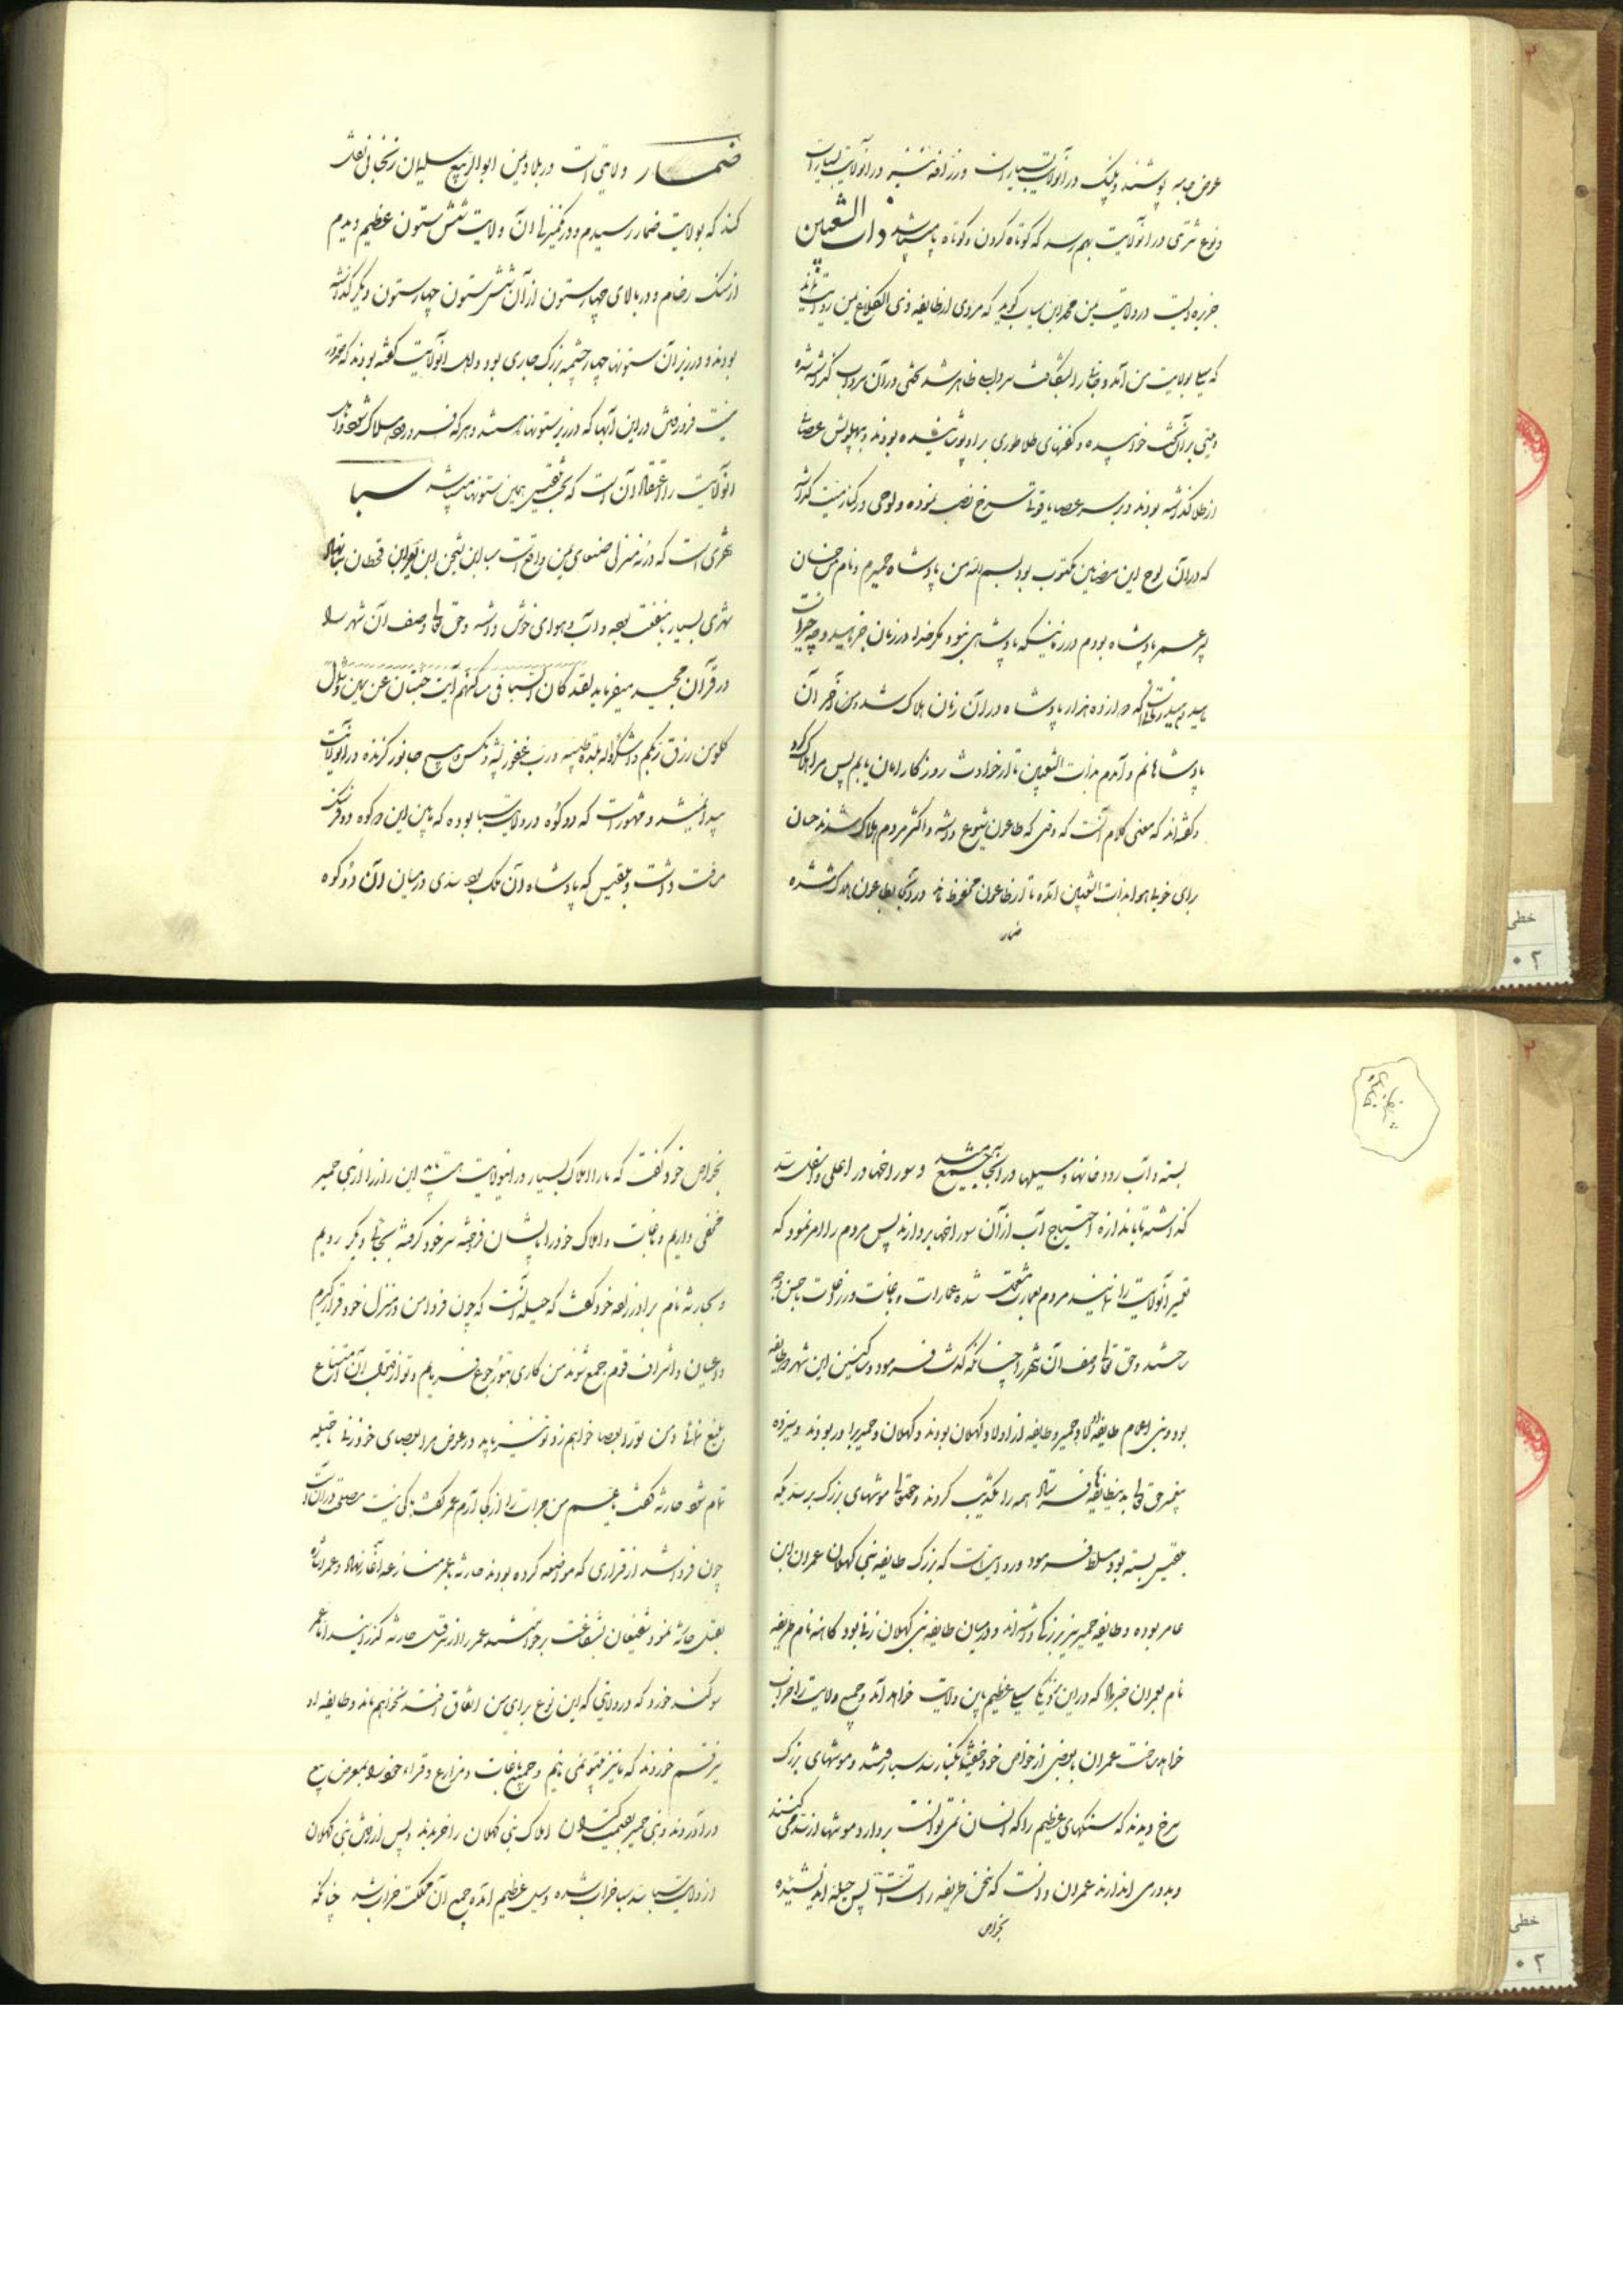 عوض جامه پوشند و پلنگ در آنولایت بسیار است و زرافه نیز در آنولایت بسیار است
و نوع شتری در آنولایت بهم رسد که کوتاه گردن و کوتاه پا میباشد ذات الشعبین
جزیره ایست در ولایت یمن محمد بن سایب گوید که مردی از طایفه ذی الکلاع یمن روایت
که سیل بولایت من آمد و جائی را بشکافت سردابه ظاهر شد تختی در آن سرداب گذاشته شده
و میتی بر آن تخت خوابیده و کفنهای طلا طوری بر او پوشانیده بودند و بپهلویش عصائی
از طلا گذاشته بودند و بر سر عصا یاقوت سرخ نصب نموده و لوحی در کنار میت گذاشته
که در آن لوح این مضامین مکتوب بود بسم الله من پادشاه حمیرم و نام من حسان
پادشاه بودم در زمانیکه پادشاهی نبود مگر خدا در زمان
که دوازده هزار پادشاه در آن زمان هلاک شد و من آخر آن
پادشاهانم و آمدم بذات الشعبین تا از حوادث روزگار امان یابم پس مرا هلاک کرد
و گفته اند که معنی کلام آنست که وقتی که طاعون شیوع داشته و اکثر مردم هلاک شدند حسان
برای خوبی هوا بذات الشعبین آمده تا از طاعون محفوظ ماند در آنجا بطاعون هلاک شده
ضمار
ضمار ولایتی است در بلاد یمن ابو الربیع سلیمان زنجانی نقل
کند که بولایت ضمار رسیدم و در یکمنزلی آن ولایت شش ستون عظیم دیدم
از سنگ رخام و در بالای چهار ستون از آن شش ستون چهار ستون دیگر گذاشته
بودند و در زیر آن ستونها چهار چشمه بزرگ جاری بود و اهل آنولایت گفته بودند که مقدور
نیست فرو رفتن در این آبها که در زیر ستونها هستند و هر که فرو رود هلاک شود و اهل
آنولایت را اعتقاد آن است که تخت بلقیس همین ستونها میباشد سبا
شهری است که در سه منزلی صنعای یمن واقع است سبا ابن یشجب ابن یعرب ابن قحطان بنا نهاد
شهری بسیار با منفعت بوده و آب و هوای خوش داشته و حق تعالی وصف آن شهر را
در قرآن مجید میفرماید لقد کان لسبا فی مساکنهم آیت جنتان عن یمین و شمال
کلو من رزق ربکم و اشکرو له بلدة طیبه و رب غفور پشه و مگس و هیچ جانور گزنده در آنولایت
پیدا نمیشد و مشهور است که دو کوه در ولایت سبا بوده که مابین این دو کوه دو فرسنگ
مسافت داشت و بلقیس که پادشاه آن ملک بود سدی در میان آن دو کوه
بسته و آب رودخانها و سیلها در آنجا جمع میشد و سوراخها در اعلی و اسفل سد
گذاشته تا باندازه احتیاج آب از آن سوراخها بردارند پس مردم را امر نمود که
تعمیر آنولایت را نمایند مردم بعمارت مشغول شده عمارات و باغات و زراعات
ساختند و حق تعالی وصف آن شهر را چنانکه گذشت فرمود و ساکنین این شهر دو طایفه
بودند بنی اعمام طایفه اولاد حمیر و طایفه از اولاد کهلان بودند و کهلان و حمیر برادر بودند و سیزده
پیغمبر حق تعالی بدین طایفه فرستاد همه را تکذیب کردند و حقتعالی موشهای بزرگ بر سدیکه
بلقیس بسته بود مسلط فرمود و روایت است که بزرگ طایفه بنی کهلان عمران ابن
عامر بوده و طایفه حمیر نیز بزرگی داشته اند و در میان طایفه بنی کهلان زنی بود کاهنه نام ظریفه
نام بعمران خبر داد که در این نزدیکی سیل عظیم باین ولایت خواهد آمد و جمیع ولایت را خراب
خواهد ساخت عمران با بعضی از خواص خود خفیة بکنار سد سبا رفتند و موشهای بزرگ
سرخ دیدند که سنگهای عظیم را که انسان نمی توانست بردارد موشها از سد می کنند
و بدوری اندازند عمران دانست که سخن ظریفه راست است پس حیله اندیشیده
بخواص
بخواص خود گفت که ما را املاک بسیار در اینولایت هست باید این راز را از بنی حمیر
مخفی داریم و باغات و املاک خود را بایشان فروخته سر خود گرفته بجای دیگر رویم
و بحارثه نام برادرزاده خود گفت که حیله آنست که چون فردا من در منزل خود قرار گیرم
و اعیان و اشراف قوم جمع شوند من کاری بتو رجوع فرمایم و تو از قبول آن امتناع
بلیغ نمائی و من تو را بعصا خواهم زد تو نیز باید در عوض مرا بعصای خود زنی تا حیله
تمام شود حارثه گفت یا عم من جرات را از کجا آرم عمر گفت باکی نیست مصلحتی در آن است
چون فردا شد از قراری که مواضعه کرده بودند حارثه با عمر منازعه آغاز نهاد و عمر اشاره
بقتل حارثه نمود شفیعان بشفاعت برخواستند عمر را از سر قتل حارثه گذرانیدند اما عمر
سوگند خورد که در ولایتی که این نوع برای من اتفاق افتد نخواهم ماند و طایفه او
نیز قسم خوردند که ما نیز بیتو نمی مانیم و جمیع باغات و مزارع و قراء خود را بمعرض بیع
در آوردند و بنی حمیر بقیمت املاک بنی کهلان را خریدند و پس از رفتن بنی کهلان
از ولایت سبا سد سبا خراب شده و سیل عظیم آمده جمیع آن مملکت خراب شد چنانکه
خطی
۰۲
خطی
۰۲